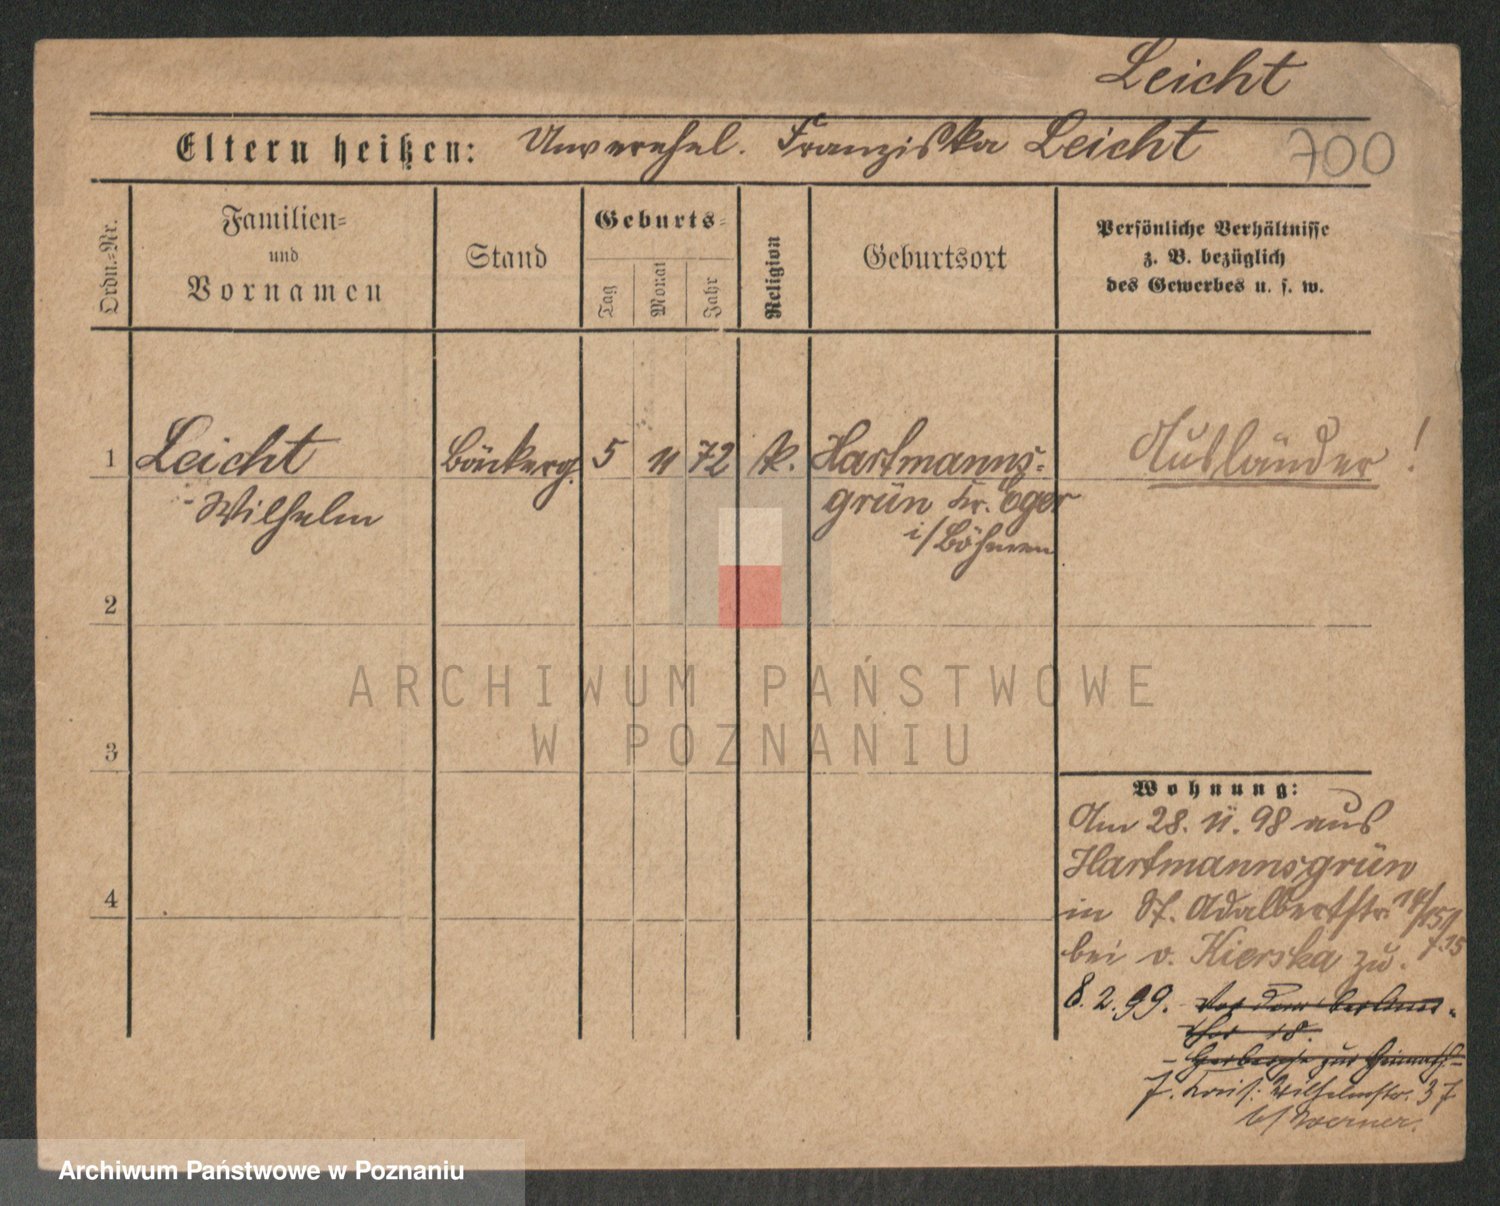 Leicht
Eltern heißen: Unverehel. Franziska Leicht
700
Ordn.=Nr.
Familien=
und
Vornamen
Stand
Geburts=
Tag
Monat
Jahr
Religion
Geburtsort
Persönliche Verhältnisse
z. B. bezüglich
des Gewerbes u. s. w.
1 Leicht Bäckerg. 5 11 72 k. Hartmanns- Ausländer!
Wilhelm grün Kr. Eger
i/Böhmen
2
3
4
ARCHIWUM PAŃSTWOWE
W POZNANIU
Wohnung:
Am 28. 11. 98 aus
Hartmannsgrün
in St. Adalbertstr. 14/15
bei v. Kierska zu.
8. 2. 99. Vor dem Berliner-
thor 18.
- Herberge zur Heimath-
Wilhelmstr. 37
b/ Woerner.
Archiwum Państwowe w Poznaniu